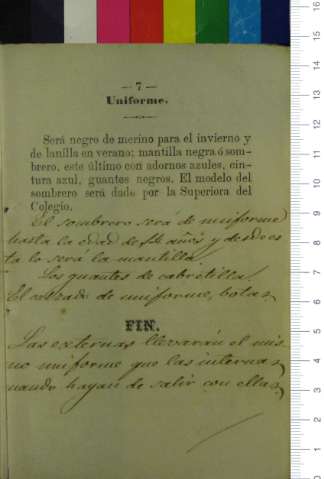 — 7 —
Uniforme.
Será negro de merino para el invierno y
de lanilla en verano; mantilla negra ó som-
brero, este último con adornos azules, cin-
tura azul, guantes negros. El modelo del
sombrero será dado por la Superiora del
Colegio.
El sombrero será de uniforme
hasta la edad de 14 años y desde es
ta lo será la mantilla.
Los guantes de cabretilla
El calzado de uniforme, botas,
FIN.
Las externas llevarán el mis
mo uniforme que las internas
cuando hayan de salir con ellas,